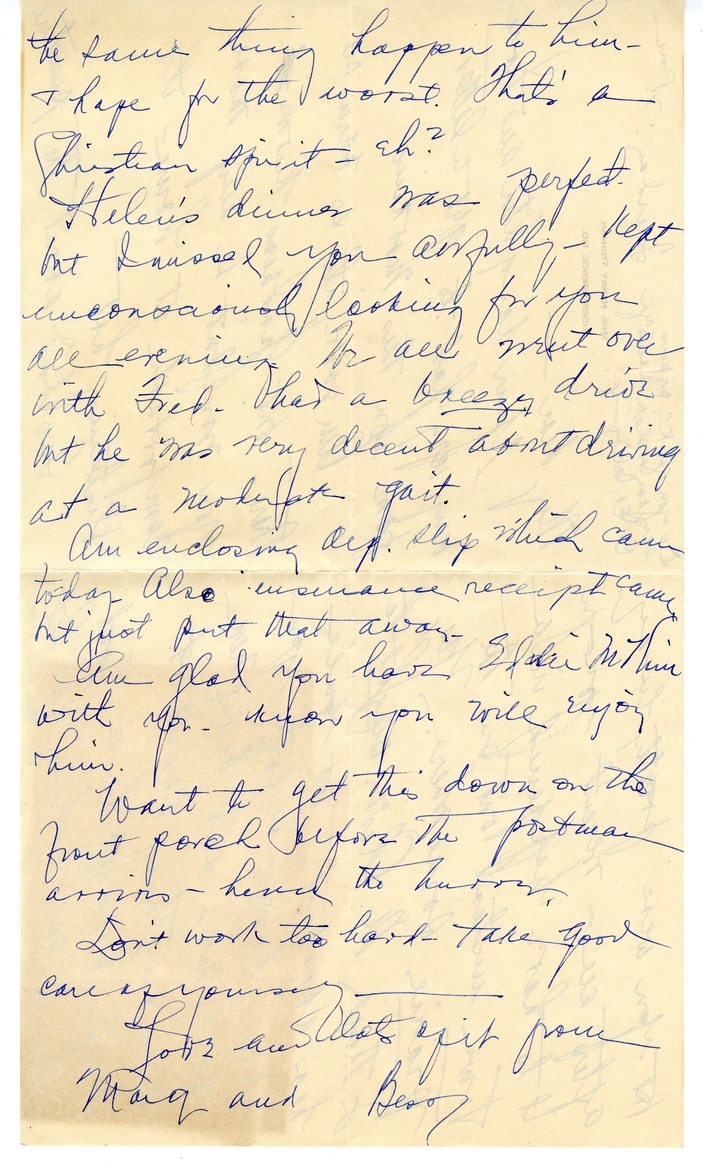 the same thing happen to him -
I hope for the worst. That's a
Christian spirit - eh?
Helen's dinner was perfect.
but I missed you awfully - kept
unconsciously looking for you
all evening. We all went over
with Fred - had a breezy drive
but he was very decent about driving
at a moderate gait.
Am enclosing dep. slip which came
today. Also insurance receipt came,
but just put that away -
Am glad you have Eddie McKim
with you - know you will enjoy
him.
Want to get this down on the
front porch before the postman
arrives - hence the hurry.
Don't work too hard - take good
care of yourself
Love and lots of it from
Marg and Bess